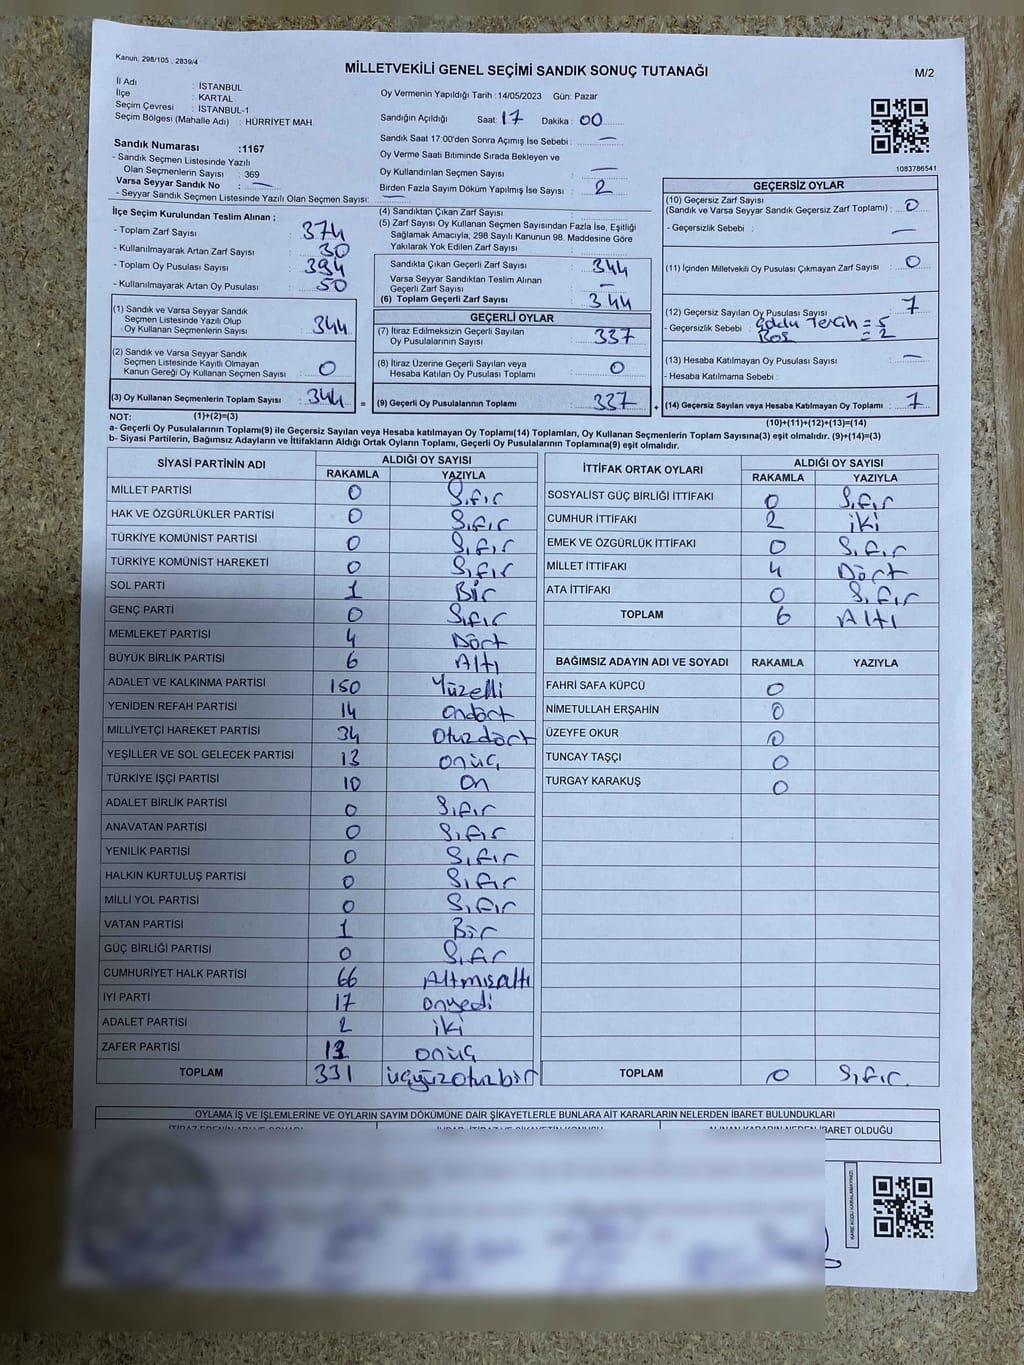 Kanun: 298/105 , 2839/4
MİLLETVEKİLİ GENEL SEÇİMİ SANDIK SONUÇ TUTANAĞI
M/2
İl Adı : İSTANBUL
İlçe : KARTAL
Seçim Çevresi : İSTANBUL-1
Seçim Bölgesi (Mahalle Adı) : HÜRRİYET MAH.
Oy Vermenin Yapıldığı Tarih :14/05/2023 Gün: Pazar
Sandığın Açıldığı Saat: 17 Dakika : 00
Sandık Saat 17:00'den Sonra Açımış İse Sebebi : —
Oy Verme Saati Bitiminde Sırada Bekleyen ve
Oy Kullandırılan Seçmen Sayısı : —
Birden Fazla Sayım Döküm Yapılmış İse Sayısı : 2
1083786541
Sandık Numarası :1167
- Sandık Seçmen Listesinde Yazılı
Olan Seçmenlerin Sayısı : 369
Varsa Seyyar Sandık No : —
- Seyyar Sandık Seçmen Listesinde Yazılı Olan Seçmen Sayısı: —
İlçe Seçim Kurulundan Teslim Alınan ;
- Toplam Zarf Sayısı : 374
- Kullanılmayarak Artan Zarf Sayısı : 30
- Toplam Oy Pusulası Sayısı : 394
- Kullanılmayarak Artan Oy Pusulası : 50
(1) Sandık ve Varsa Seyyar Sandık
Seçmen Listesinde Yazılı Olup
Oy Kullanan Seçmenlerin Sayısı : 344
(2) Sandık ve Varsa Seyyar Sandık
Seçmen Listesinde Kayıtlı Olmayan
Kanun Gereği Oy Kullanan Seçmen Sayısı : 0
(3) Oy Kullanan Seçmenlerin Toplam Sayısı : 344
(4) Sandıktan Çıkan Zarf Sayısı :
(5) Zarf Sayısı Oy Kullanan Seçmen Sayısından Fazla İse, Eşitliği
Sağlamak Amacıyla, 298 Sayılı Kanunun 98. Maddesine Göre
Yakılarak Yok Edilen Zarf Sayısı :
Sandıkta Çıkan Geçerli Zarf Sayısı : 344
Varsa Seyyar Sandıktan Teslim Alınan
Geçerli Zarf Sayısı : —
(6) Toplam Geçerli Zarf Sayısı : 344
GEÇERLİ OYLAR
(7) İtiraz Edilmeksizin Geçerli Sayılan
Oy Pusulalarının Sayısı : 337
(8) İtiraz Üzerine Geçerli Sayılan veya
Hesaba Katılan Oy Pusulası Toplamı : 0
= (9) Geçerli Oy Pusulalarının Toplamı : 337
GEÇERSİZ OYLAR
(10) Geçersiz Zarf Sayısı
(Sandık ve Varsa Seyyar Sandık Geçersiz Zarf Toplamı) : 0
- Geçersizlik Sebebi : —
(11) İçinden Milletvekili Oy Pusulası Çıkmayan Zarf Sayısı : 0
(12) Geçersiz Sayılan Oy Pusulası Sayısı : 7
- Geçersizlik Sebebi : Tercih = 5
Boş = 2
(13) Hesaba Katılmayan Oy Pusulası Sayısı : —
- Hesaba Katılmama Sebebi :
+ (14) Geçersiz Sayılan veya Hesaba Katılmayan Oy Toplamı : 7
NOT: (1)+(2)=(3)
(10)+(11)+(12)+(13)=(14)
a- Geçerli Oy Pusulalarının Toplamı(9) ile Geçersiz Sayılan veya Hesaba katılmayan Oy Toplamı(14) Toplamları, Oy Kullanan Seçmenlerin Toplam Sayısına(3) eşit olmalıdır. (9)+(14)=(3)
b- Siyasi Partilerin, Bağımsız Adayların ve İttifakların Aldığı Ortak Oyların Toplamı, Geçerli Oy Pusulalarının Toplamına(9) eşit olmalıdır.
SİYASİ PARTİNİN ADI ALDIĞI OY SAYISI
RAKAMLA YAZIYLA
MİLLET PARTİSİ 0 Sıfır
HAK VE ÖZGÜRLÜKLER PARTİSİ 0 Sıfır
TÜRKİYE KOMÜNİST PARTİSİ 0 Sıfır
TÜRKİYE KOMÜNİST HAREKETİ 0 Sıfır
SOL PARTİ 1 Bir
GENÇ PARTİ 0 Sıfır
MEMLEKET PARTİSİ 4 Dört
BÜYÜK BİRLİK PARTİSİ 6 Altı
ADALET VE KALKINMA PARTİSİ 150 Yüzelli
YENİDEN REFAH PARTİSİ 14 ondört
MİLLİYETÇİ HAREKET PARTİSİ 34 Otuzdört
YEŞİLLER VE SOL GELECEK PARTİSİ 13 onüç
TÜRKİYE İŞÇİ PARTİSİ 10 On
ADALET BİRLİK PARTİSİ 0 Sıfır
ANAVATAN PARTİSİ 0 Sıfır
YENİLİK PARTİSİ 0 Sıfır
HALKIN KURTULUŞ PARTİSİ 0 Sıfır
MİLLİ YOL PARTİSİ 0 Sıfır
VATAN PARTİSİ 1 Bir
GÜÇ BİRLİĞİ PARTİSİ 0 Sıfır
CUMHURİYET HALK PARTİSİ 66 Altmışaltı
İYİ PARTİ 17 onyedi
ADALET PARTİSİ 2 iki
ZAFER PARTİSİ 13 onüç
TOPLAM 331 üçyüzotuzbir
İTTİFAK ORTAK OYLARI ALDIĞI OY SAYISI
RAKAMLA YAZIYLA
SOSYALİST GÜÇ BİRLİĞİ İTTİFAKI 0 Sıfır
CUMHUR İTTİFAKI 2 iki
EMEK VE ÖZGÜRLÜK İTTİFAKI 0 Sıfır
MİLLET İTTİFAKI 4 Dört
ATA İTTİFAKI 0 Sıfır
TOPLAM 6 Altı
BAĞIMSIZ ADAYIN ADI VE SOYADI RAKAMLA YAZIYLA
FAHRİ SAFA KÜPCÜ 0
NİMETULLAH ERŞAHİN 0
ÜZEYFE OKUR 0
TUNCAY TAŞÇI 0
TURGAY KARAKUŞ 0
TOPLAM 0 Sıfır.
OYLAMA İŞ VE İŞLEMLERİNE VE OYLARIN SAYIM DÖKÜMÜNE DAİR ŞİKAYETLERLE BUNLARA AİT KARARLARIN NELERDEN İBARET BULUNDUKLARI
İBARET OLDUĞU
KARE KODU KARALAMAYINIZ!